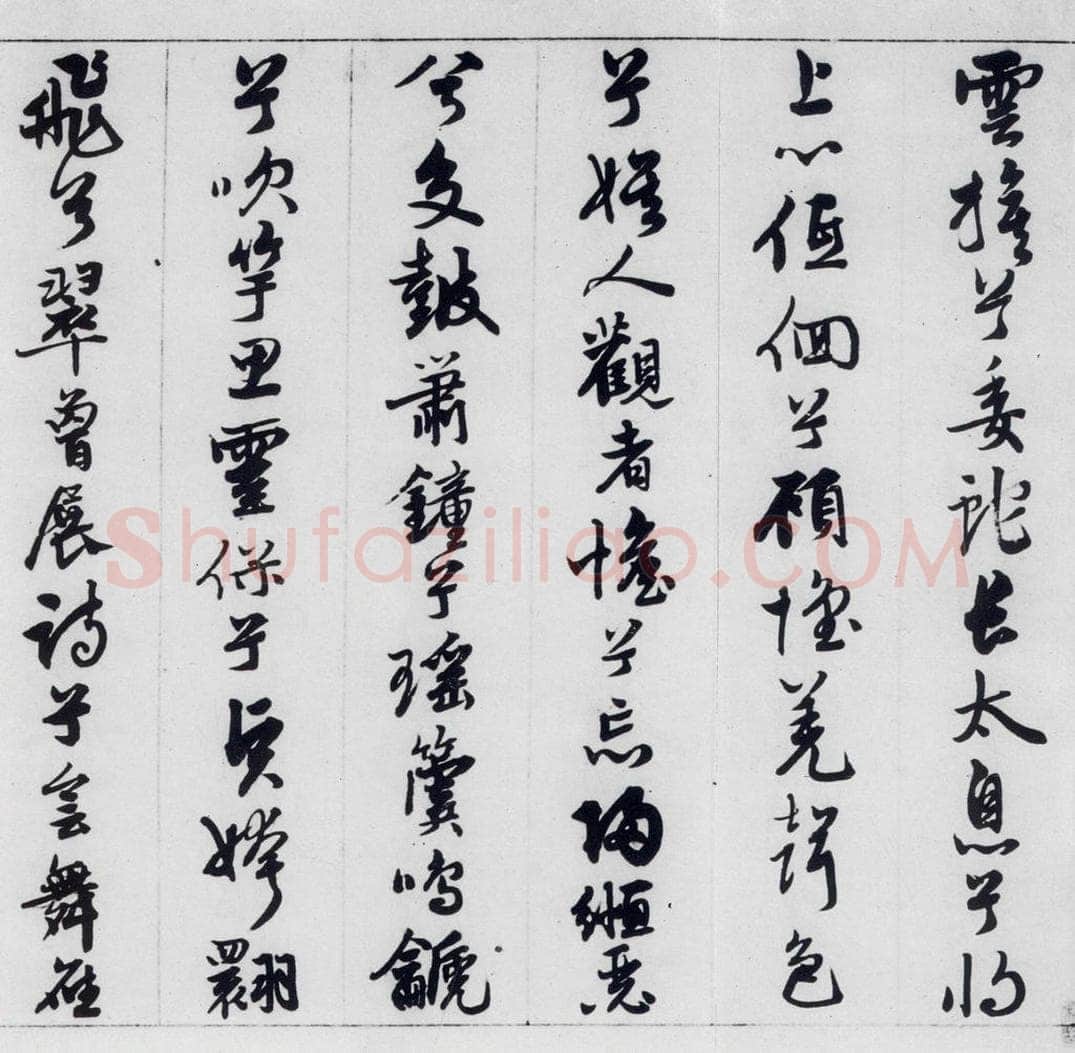 雲旗兮委蛇长太息兮将
上心低佪兮顧懷羌聲色
兮娱人觀者憺兮忘歸縆瑟
兮交鼓蕭鐘兮瑶簴鳴鷈
兮吹竽思靈保兮贤姱翾
飛兮翠曾展詩兮會舞應
Shufaziliao.COM